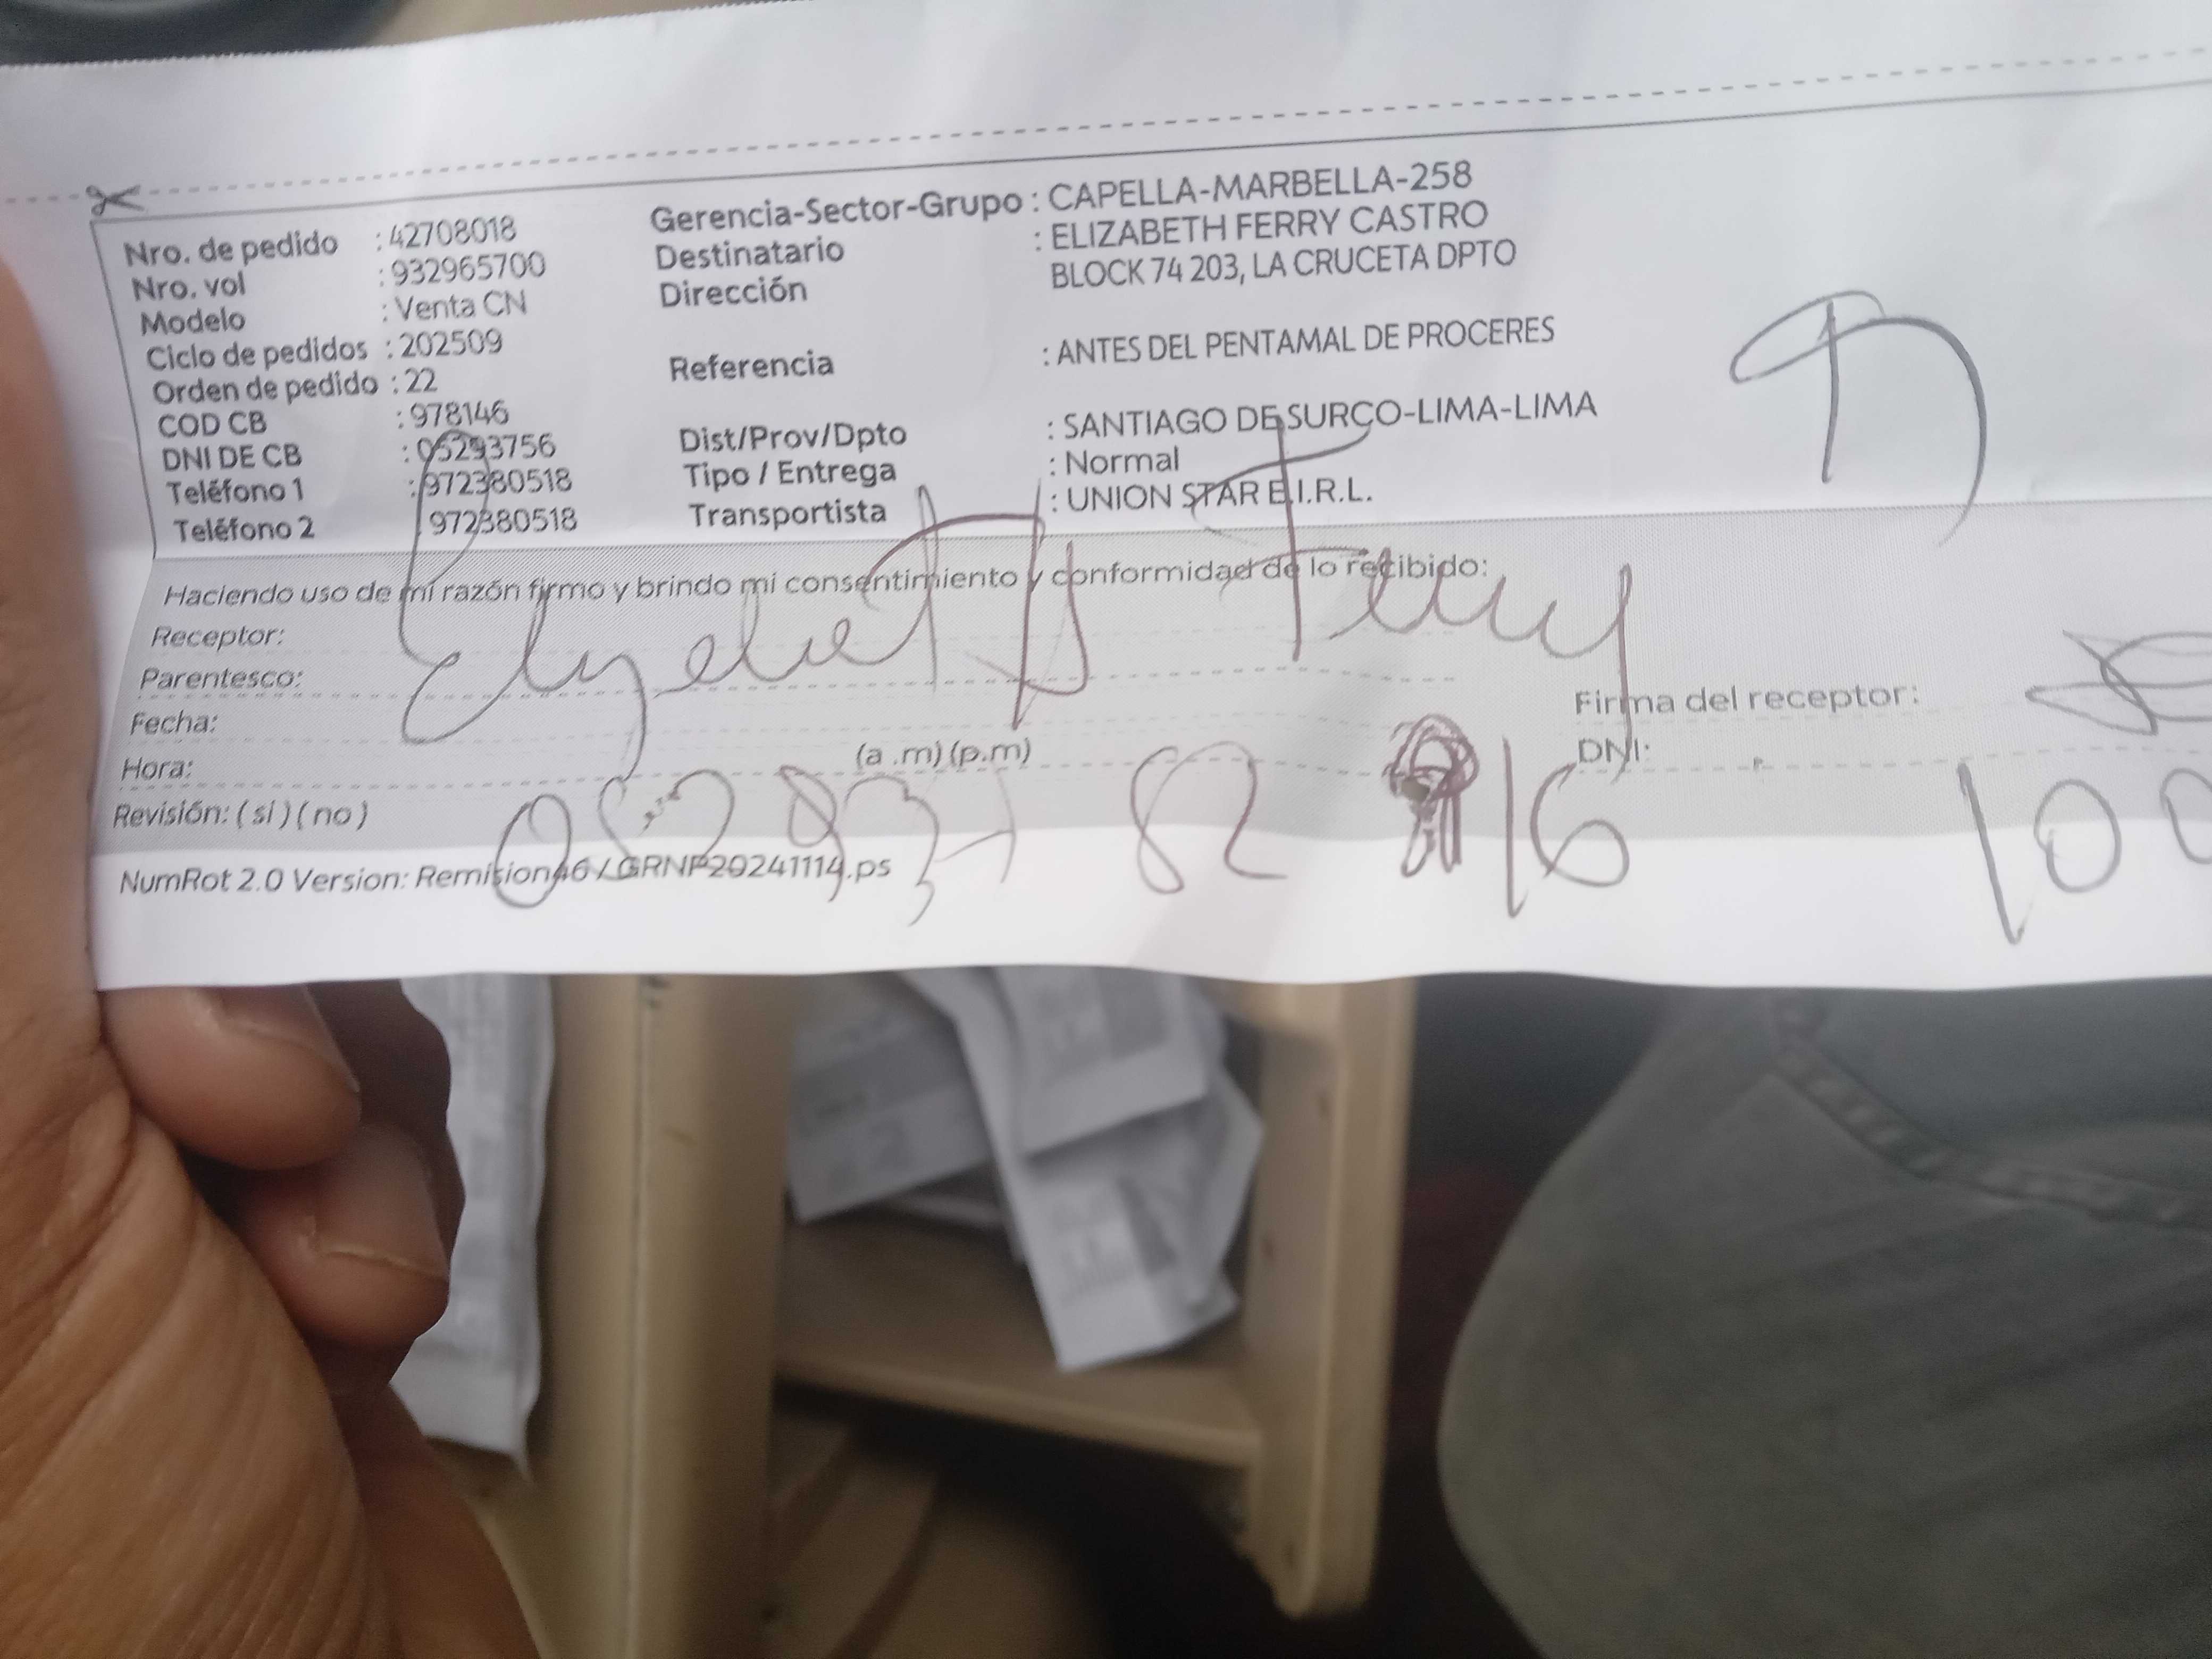 Nro. de pedido : 42708018
Nro. vol : 932965700
Modelo : Venta CN
Ciclo de pedidos : 202509
Orden de pedido : 22
COD CB : 978146
DNI DE CB : 05293756
Teléfono 1 : 972380518
Teléfono 2 972380518
Gerencia-Sector-Grupo : CAPELLA-MARBELLA-258
Destinatario : ELIZABETH FERRY CASTRO
Dirección BLOCK 74 203, LA CRUCETA DPTO
Referencia : ANTES DEL PENTAMAL DE PROCERES
Dist/Prov/Dpto : SANTIAGO DE SURCO-LIMA-LIMA
Tipo / Entrega : Normal
Transportista : UNION STAR E.I.R.L.
Haciendo uso de mi razón firmo y brindo mi consentimiento y conformidad de lo recibido:
Receptor:
Parentesco:
Fecha:
Hora: (a .m) (p.m)
Revisión: ( si ) ( no )
Ferry
Firma del receptor:
DNI:
16
NumRot 2.0 Version: Remision46 / GRNP20241114.ps